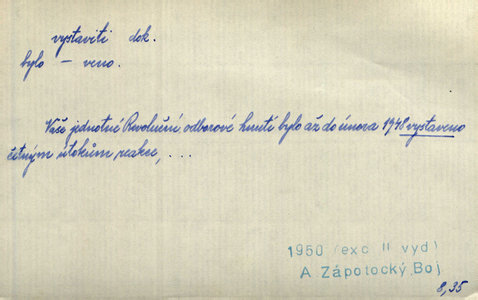 vystaviti dok.
bylo – veno.
Vaše jednotné Revoluční odborové hnutí bylo až do února 1948 vystaveno
četným útokům reakce, ...
1950 (exc II vyd)
A. Zápotocký, Boj.
8,35